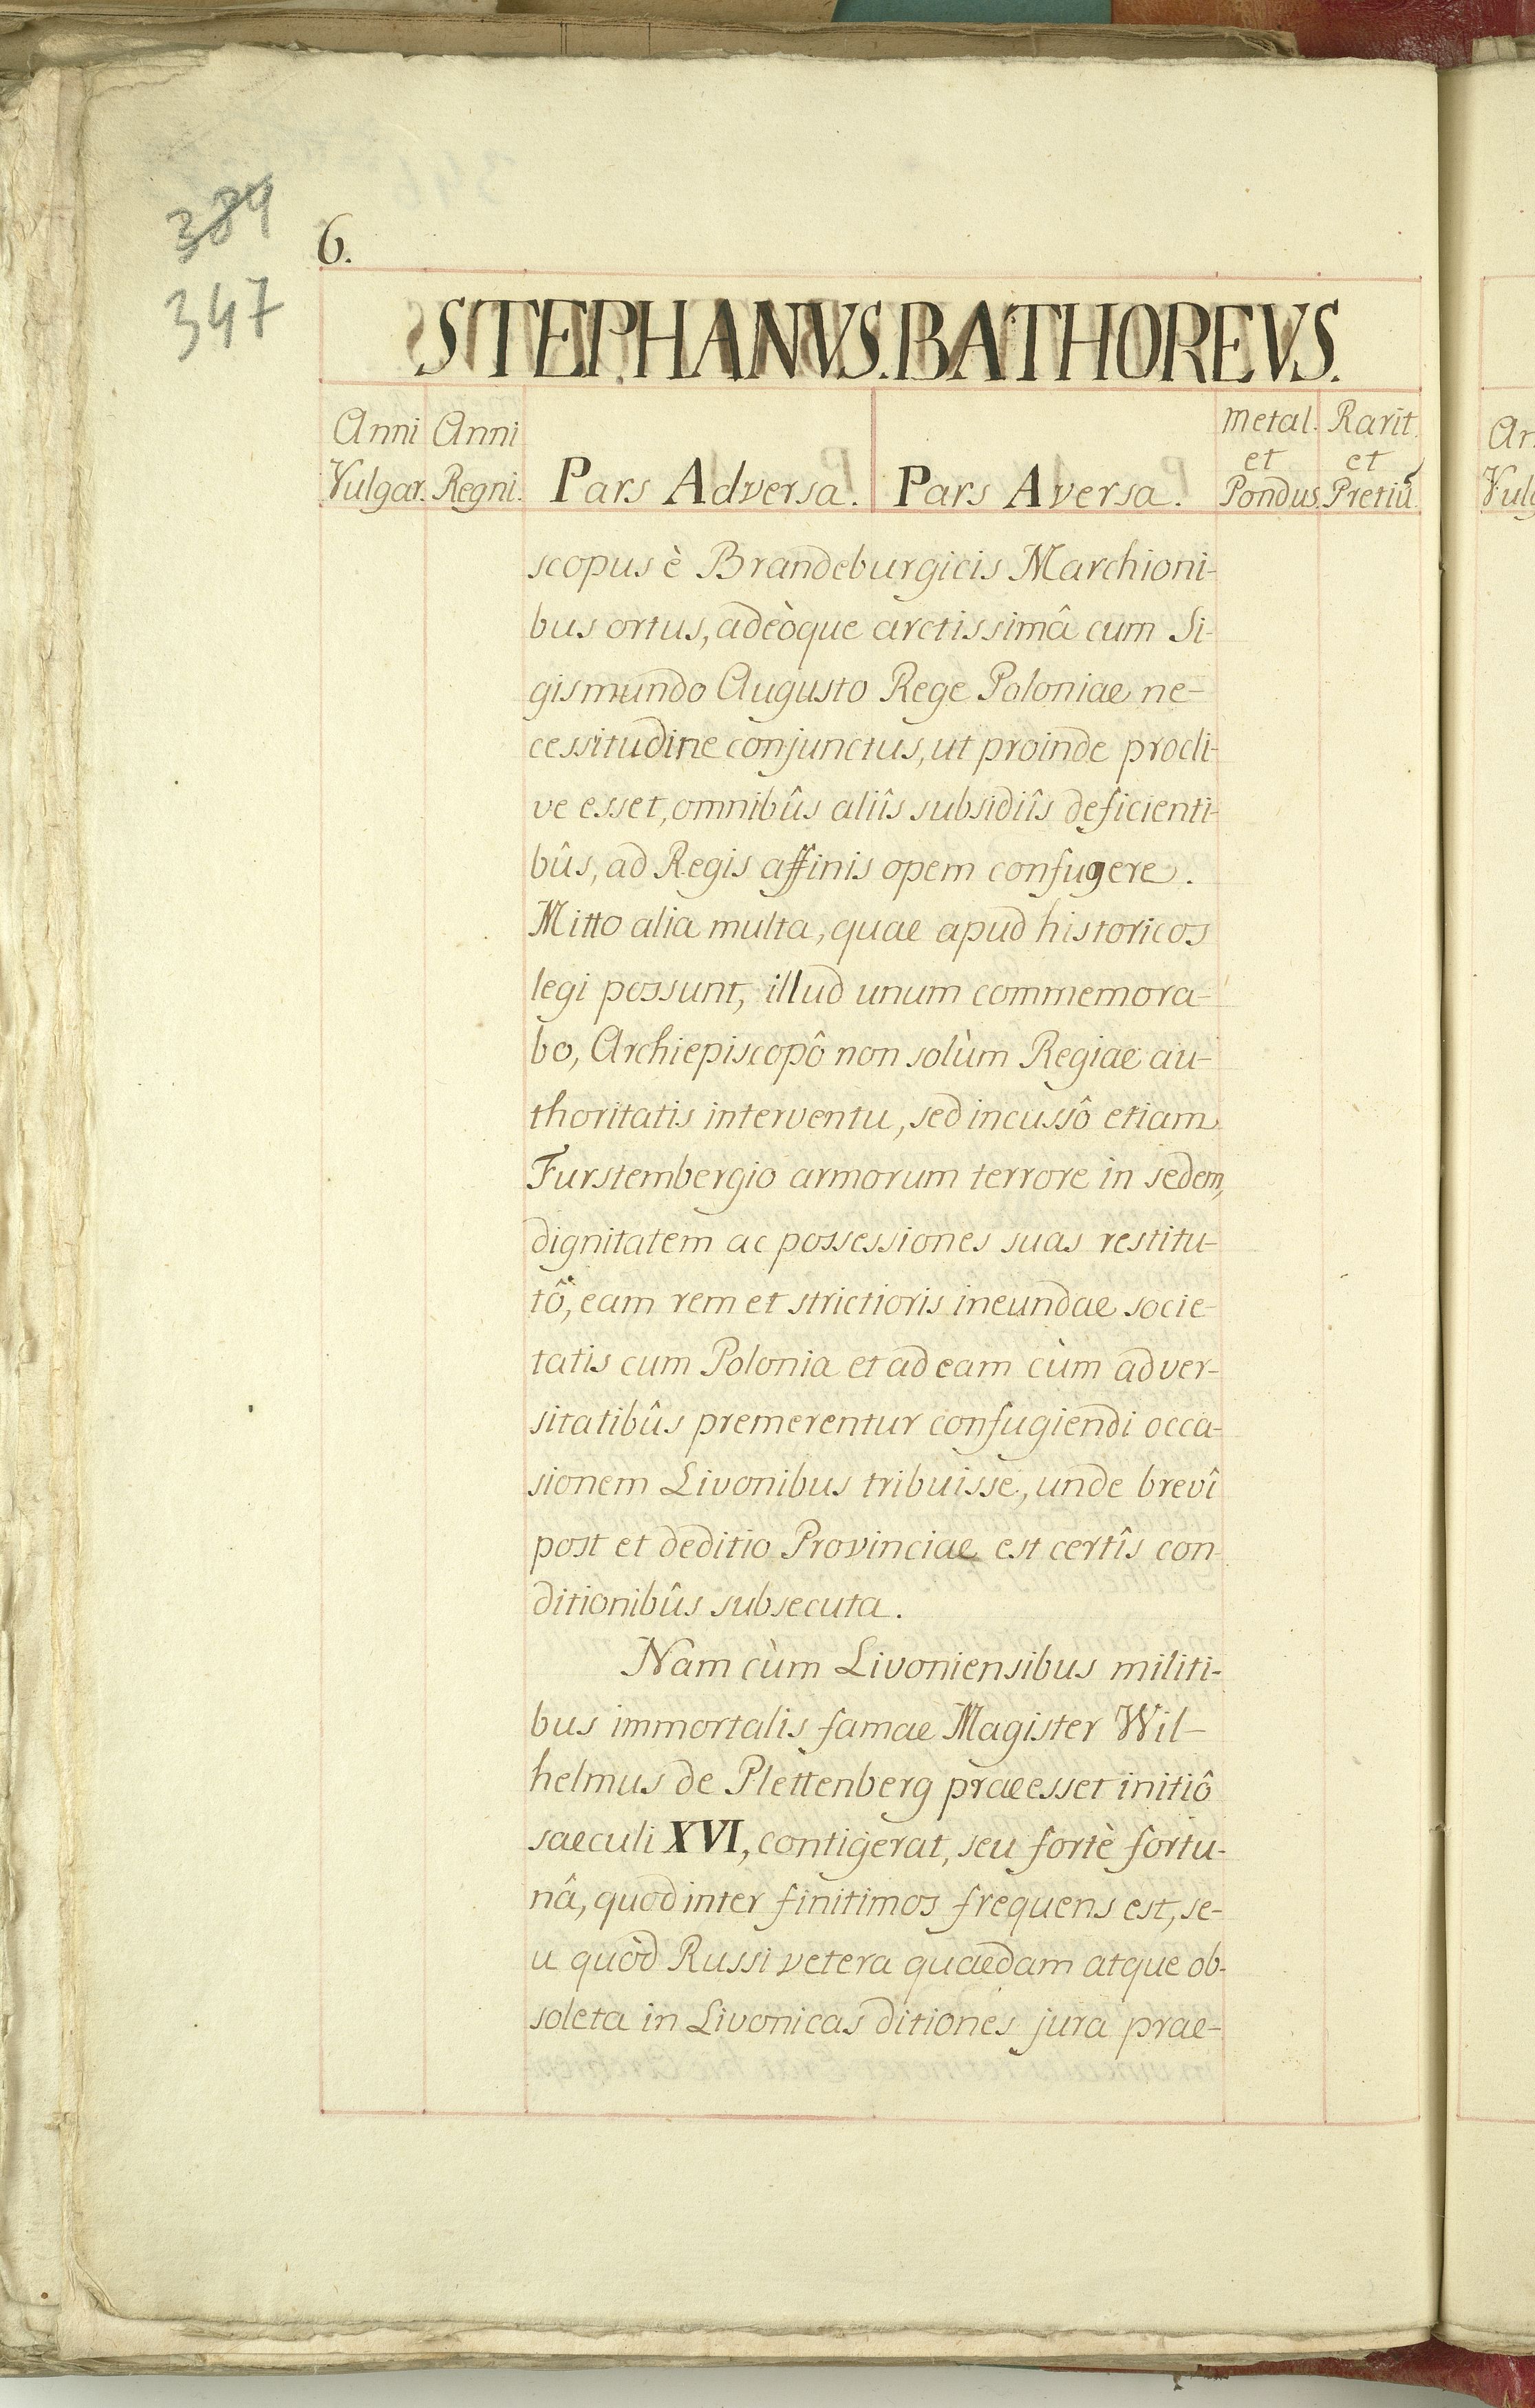 389
347
6.
STEPHANVS. BATHOREVS.
Anni Vulgar.
Anni Regni.
Pars Adversa.
Pars Aversa.
Metal. et Pondus.
Rarit. et Pretiū.
scopus è Brandeburgicis Marchioni-
bus ortus, adeòque arctissimâ cum Si-
gismundo Augusto Rege Poloniae ne-
cessitudine conjunctus, ut proinde procli-
ve esset, omnibûs aliîs subsidiîs deficienti-
bûs, ad Regis affinis opem confugere.
Mitto alia multa, quae apud historicos
legi possunt, illud unum commemora-
bo, Archiepiscopô non solùm Regiae au-
thoritatis interventu, sed incussô etiam
Furstembergio armorum terrore in sedem,
dignitatem ac possessiones suas restitu-
tô, eam rem et strictioris ineundae socie-
tatis cum Polonia et ad eam cùm adver-
sitatibûs premerentur confugiendi occa-
sionem Livonibus tribuisse, unde brevî
post et deditio Provinciae est certîs con-
ditionibûs subsecuta.
Nam cùm Livoniensibus militi-
bus immortalis famae Magister Wil-
helmus de Plettenberg praeesset initiô
saeculi XVI, contigerat, seu fortè fortu-
nâ, quod inter finitimos frequens est, se-
u quòd Russi vetera quaedam atque ob-
soleta in Livonicas ditiones jura prae-